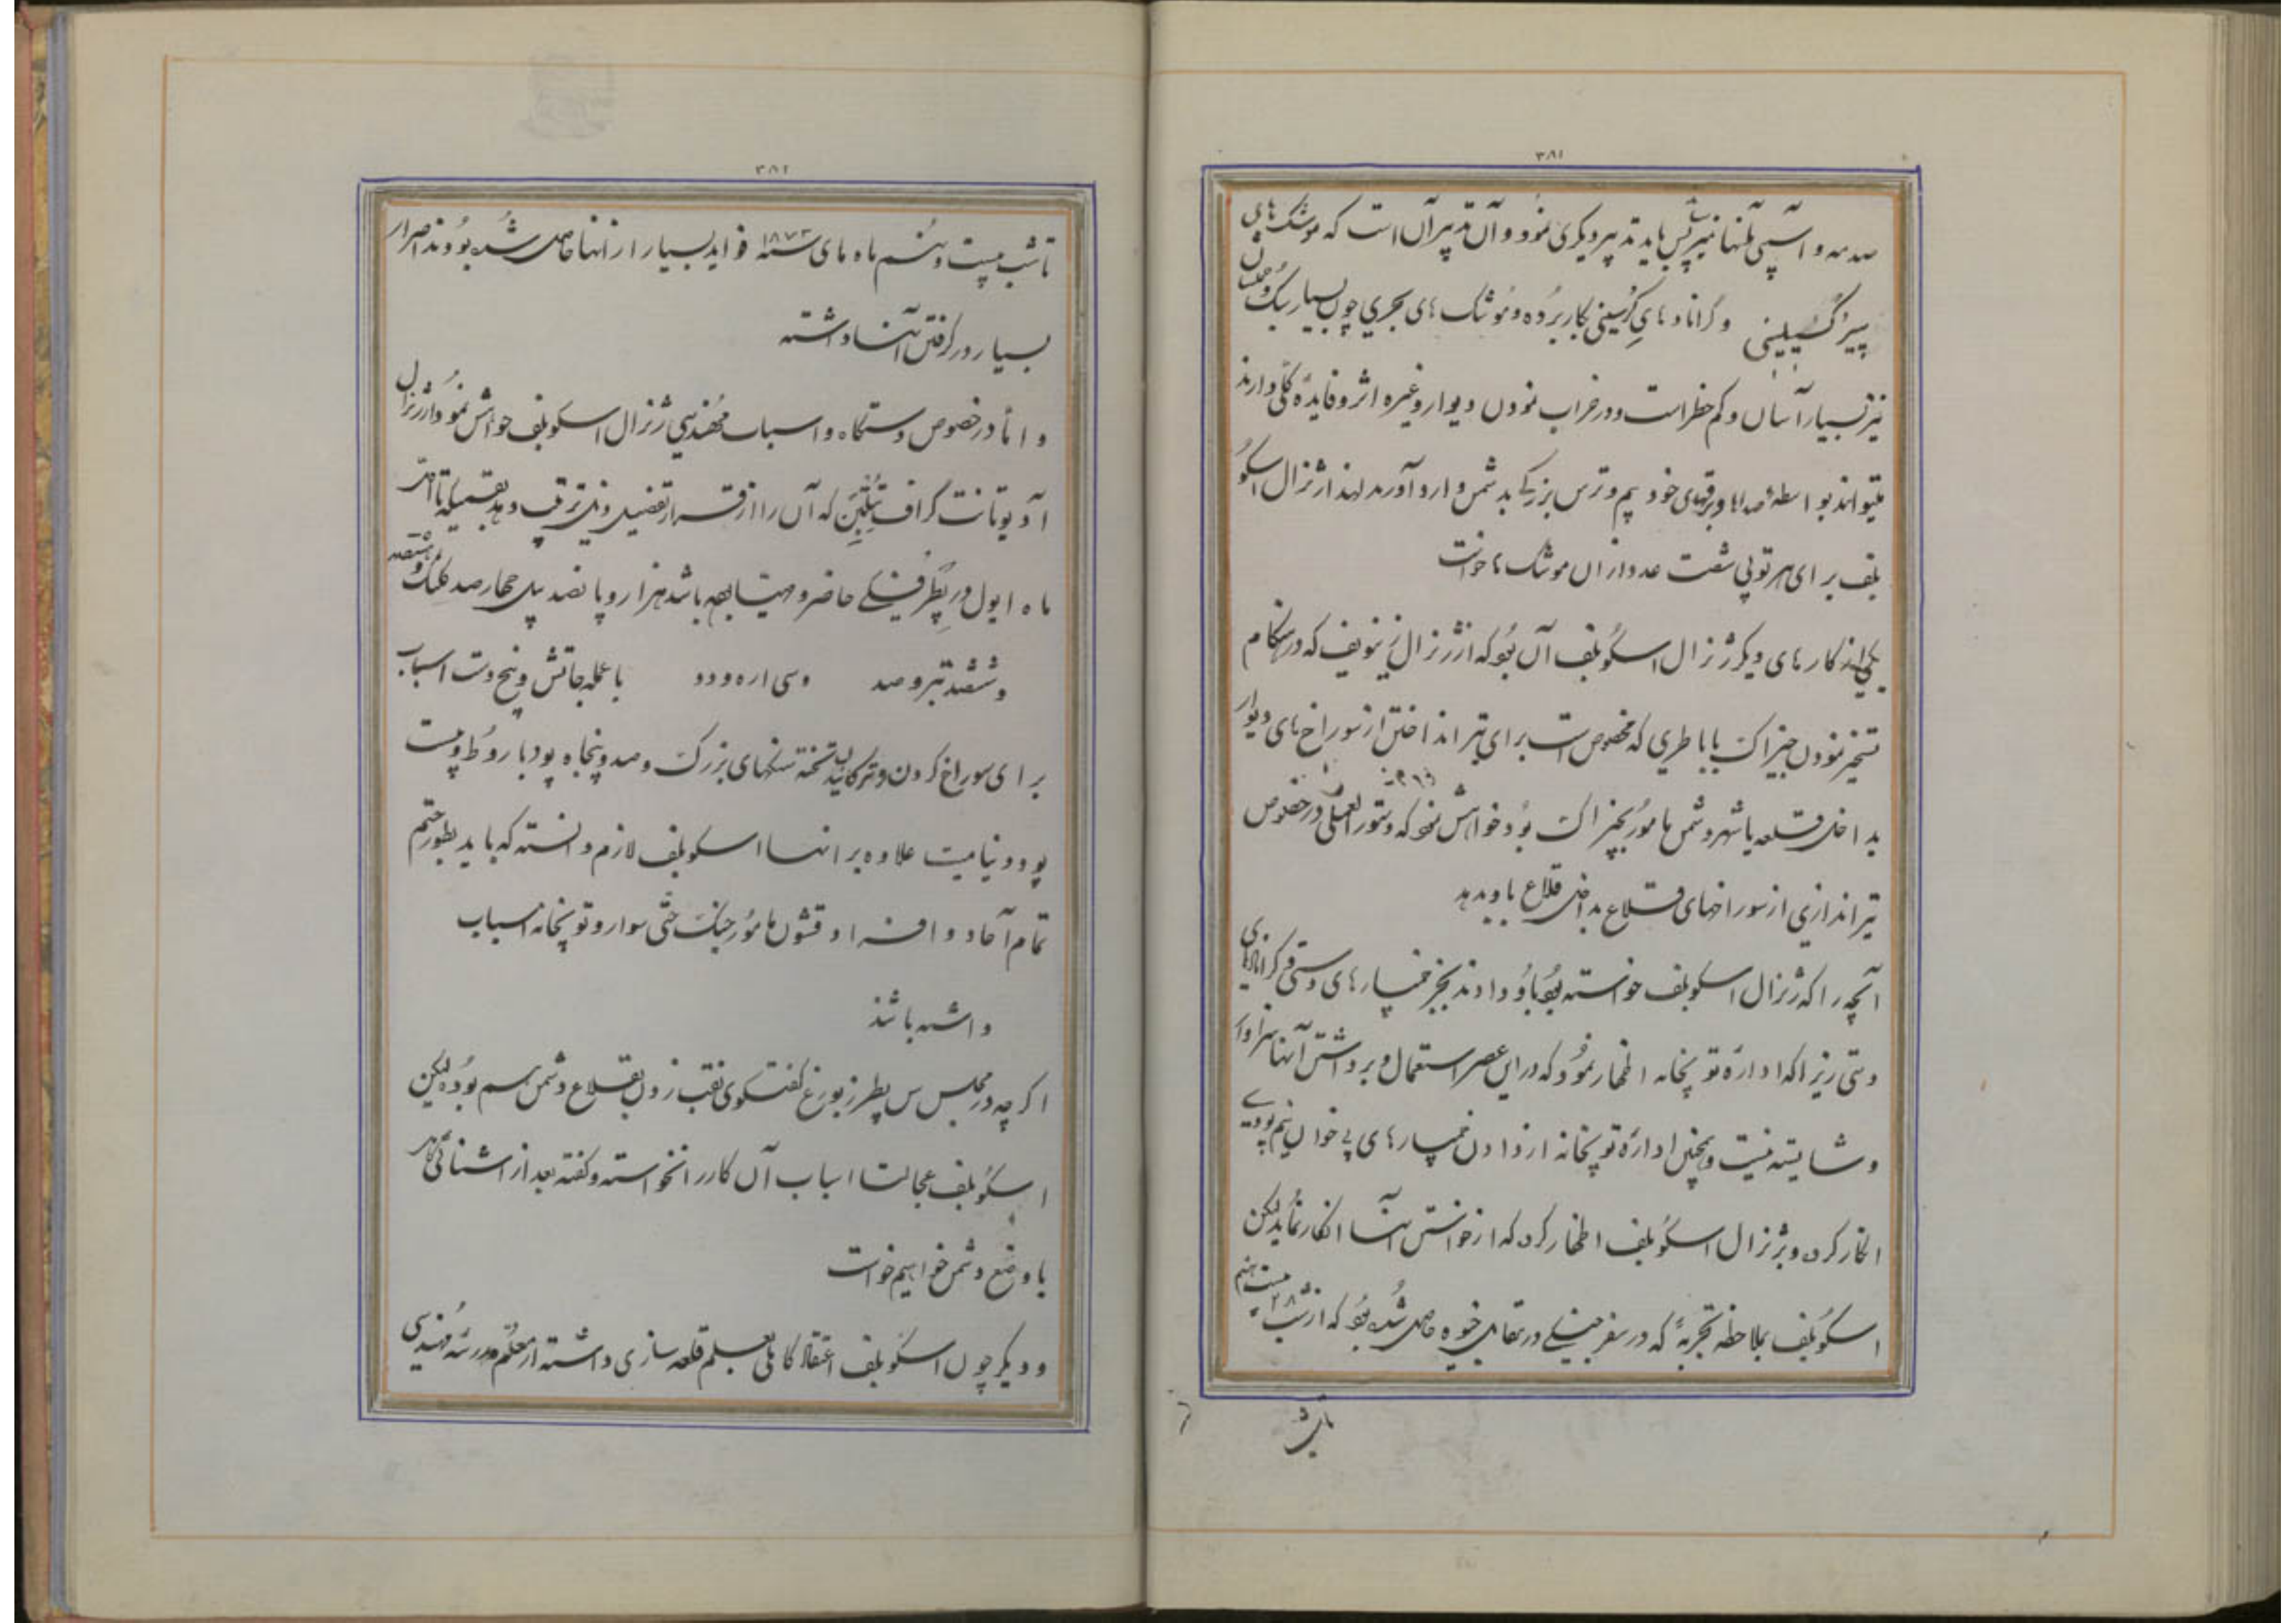 ۳۸۱
صدمه و آسیبی بآنها نمیرسد پس باید تدبیر دیگری نمود و آن تدبیر آن است که موشک های
پیرکسیلینی و گرانادهای کرسینی بکار برده و موشک های بحری چون بسیار سبک و حملشان
نیز بسیار آسان و کم خطر است و در خراب نمودن دیوار و غیره اثر و فایدهٔ کلی دارند
میتوانند بواسطه صداها و برقهای خود بیم و ترس بزرگی بدشمن وارد آورند لهذا ژنرال اسکو
بلف برای هر توپی شصت عدد از ان موشک ها خواست
یکی از کارهای دیگر ژنرال اسکوبلف آن بود که از ژنرال زینویف که در هنگام
تسخیر نمودن جیزاک با باطری که مخصوص است برای تیر انداختن از سوراخ های دیوار
بداخل قلعه یا شهر دشمن مامور بجیزاک بود خواهش نمود که دستورالعملی در خصوص
تیراندازی از سوراخهای قلاع بداخل قلاع باو بدهد
آنچه را که ژنرال اسکوبلف خواسته بود باو دادند بجز خمپارهای دستی و گرانادهای
دستی زیرا که ادارهٔ توپخانه اظهار نمود که در این عصر استعمال و برداشتن آنها سزاوار
و شایسته نیست و همچنین ادارهٔ توپخانه از دادن خمپارهای پی خوان نیم پودی
انکار کرد و بژنرال اسکوبلف اظهار کرد که از خواستن آنها انکار نماید لیکن
اسکوبلف بملاحظه تجربهٔ که در سفر جنگی در مقابل خیوه حاصل شده بود که از شب ۲۸ بیست هشتم
تا شب
۳۸۲
تا شب بیست و نهم ماه مای سنه ۱۸۷۳ فواید بسیار از انها حاصل شده بودند اصرار
بسیار در گرفتن آنها داشته
و اما در خصوص دستگاه و اسباب مهندسی ژنرال اسکوبلف خواهش نمود از ژنرال
آدیوتانت گراف تتلبن که آن را از قرار تفضیل ذیل ترتیب دهد بقسمیکه تا آخر
ماه ایول در پطرفسکی حاضر و مهیا بوده باشد هزار و پانصد بیل چهارصد کلنگ و هشتصد
و ششصد تبر و صد و سی اره و دو با عمله جاتش و پنج دست اسباب
برای سوراخ کردن و ترکانیدن تخته سنگهای بزرگ و صد و پنجاه پود باروط و بیست
پود دینامیت علاوه بر اینها اسکوبلف لازم دانسته که باید بطور حتم
تمام آحاد و افراد قشون مامور جنگ حتی سوار و توپخانه اسباب
داشته باشند
اگرچه در مجلس س پطرزبورغ گفتگوی نقب زدن بقلاع دشمن هم بوده لیکن
اسکوبلف عجالتا اسباب آن کار را نخواسته و گفته بعد از آشنائی کامل
با وضع دشمن خواهیم خواست
و دیگر چون اسکوبلف اعتقاد کاملی بعلم قلعه سازی داشته از معلم مدرسه مهندسی